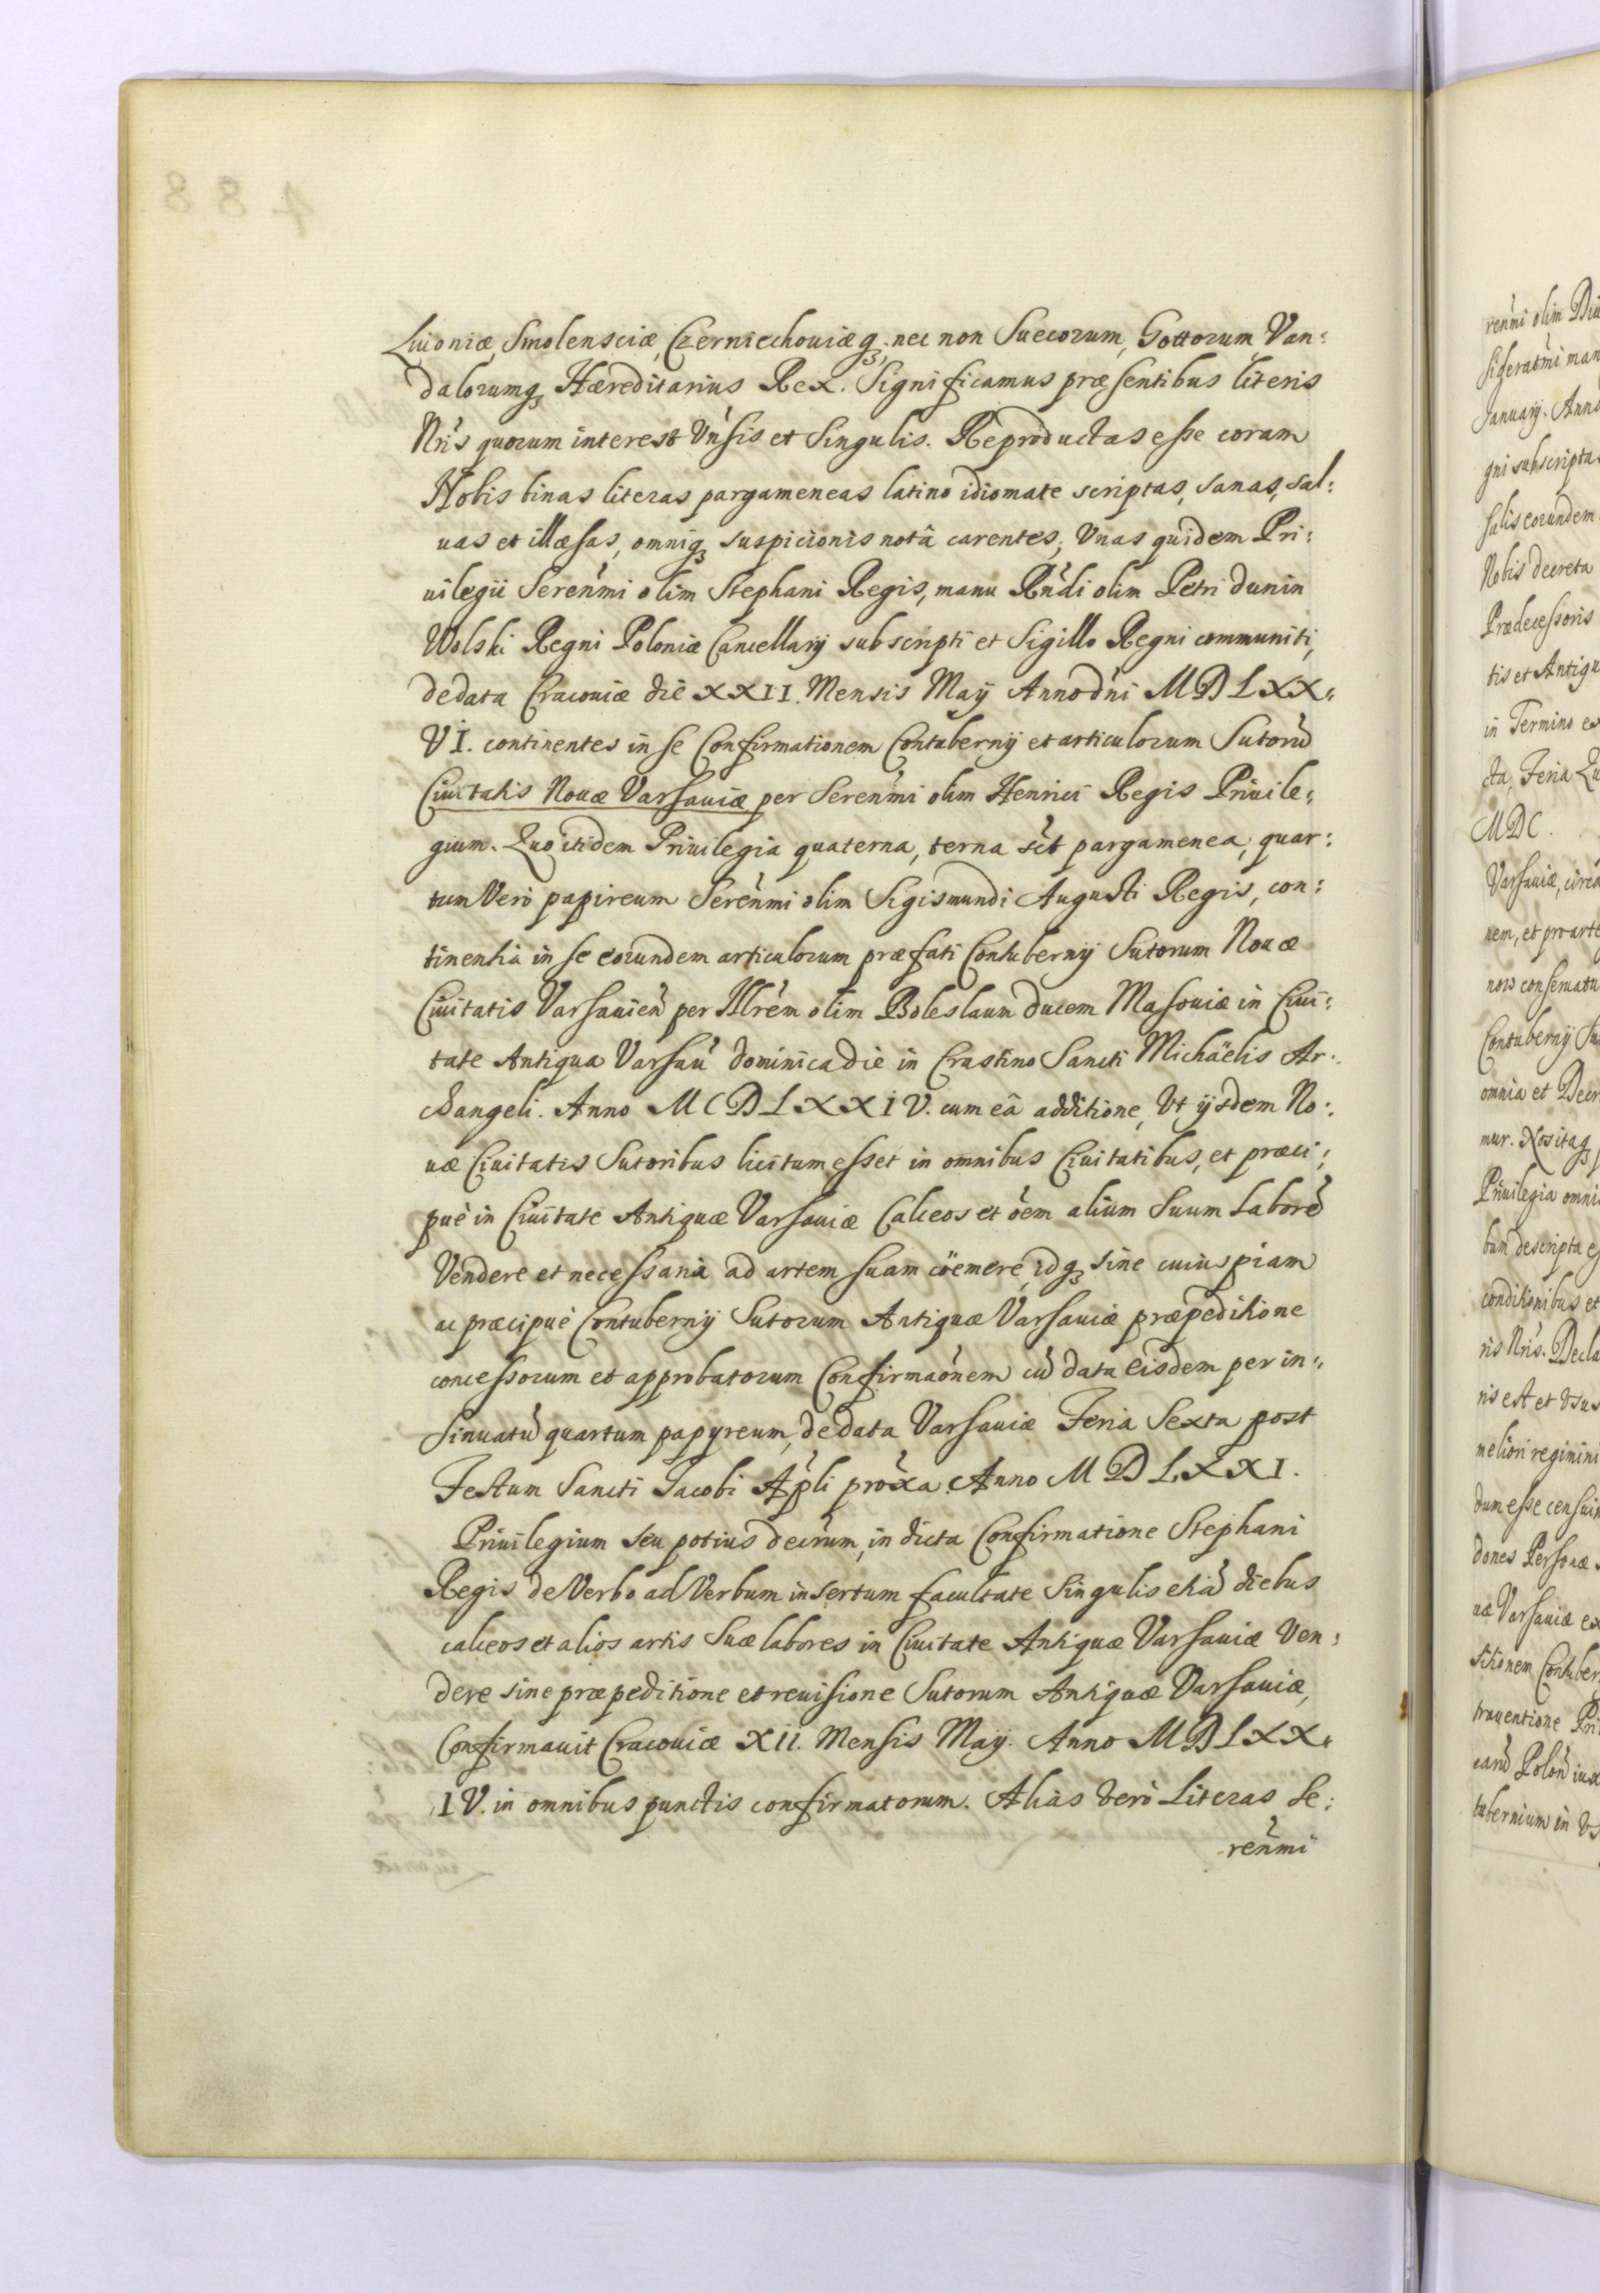 Liuoniæ, Smolensciæ, Czerniechouiæq; nec non Suecorum, Gottorum Van:
dalorumq; Hæreditarius Rex. Significamus præsentibus literis
Nrīs quorum interest Vnīsis et Singulis. Reproductas esse coram
Nobis binas literas pargameneas latino idiomate scriptas, sanas, sal:
uas et illæsas, omniq; suspicionis notâ carentes; Vnas quidem Pri:
uilegii Serenm̄i olim Stephani Regis, manu Rnd̄i olim Petri dunin
Wolski Regni Poloniæ Cancellarij subscripti et Sigillo Regni communiti,
dedata Cracouiæ die XXII. Mensis Maij Anno dn̄i MDLXX:
VI. continentes in se Confirmationem Contubernij et articulorum Sutorū
Ciuitatis Nouæ Varsauiæ per Serenm̄i olim Henrici Regis Priuile:
gium. Quo itidem Priuilegia quaterna, terna sc̄t pargamenea, quar:
tum Verò papireum Serenm̄i olim Sigismundi Augusti Regis, con:
tinentia in se eorundem articulorum præfati Contubernij Sutorum Nouæ
Ciuitatis Varsauien̄ per Illrēm olim Boleslaum ducem Masouiæ in Ciui:
tate Antiqua Varsau̅ dominica die in Crastino Sancti Michäelis Ar:
changeli. Anno MCDLXXIV. cum eâ additione, Vt ijsdem No:
uæ Ciuitatis Sutoribus licitum esset in omnibus Ciuitatibus, et præci:
puè in Ciuitate Antiquæ Varsauiæ Calceos et oēm alium Suum Laborē
Vendere et necessaria ad artem suam cöemere, idq; sine cuiuspiam
ac præcipuè Contubernij Sutorum Antiquæ Varsauiæ præpeditione
concessorum et approbatorum Confirmaōnem cū data eisdem per in:
sinuatū quartum papyreum, dedata Varsauiæ Feria Sexta post
Festum Sancti Jacobi Ap̄li prox̄a. Anno MDLXXI.
Priuilegium seu potius decr̄um, in dicta Confirmatione Stephani
Regis de Verbo ad Verbum insertum facultate Singulis etiā diebus
calceos et alios artis Suæ labores in Ciuitate Antiquæ Varsauiæ Ven:
dere sine præpeditione et reuisione Sutorum Antiquæ Varsauiæ,
Confirmauit Cracouiæ XII. Mensis Maij. Anno MDLXX:
IV. in omnibus punctis confirmatorum. Aliàs verò Literas Se:
renm̄i
renm̄i olim Diu
January. Anno
gni subscripta
salis eorundem
Nobis decreta
Prædecessoris
tis et Antiqu
in Termino ex
cta, Feria Qu
MDC.
Varsauiæ, circa
nem, et pro arte
Contubernij Su
omnia et Decr
mur. Nos itaq;
Priuilegia omni
bum descripta e
conditionibus et
ris Nrīs. Decla
ris est et Vsus
meliori regimini
dum esse censui
dones Personæ
uæ Varsauiæ ex
sitionem Contuber
trauentione Pri
earū Polon̄ iux
tubernium in Vs